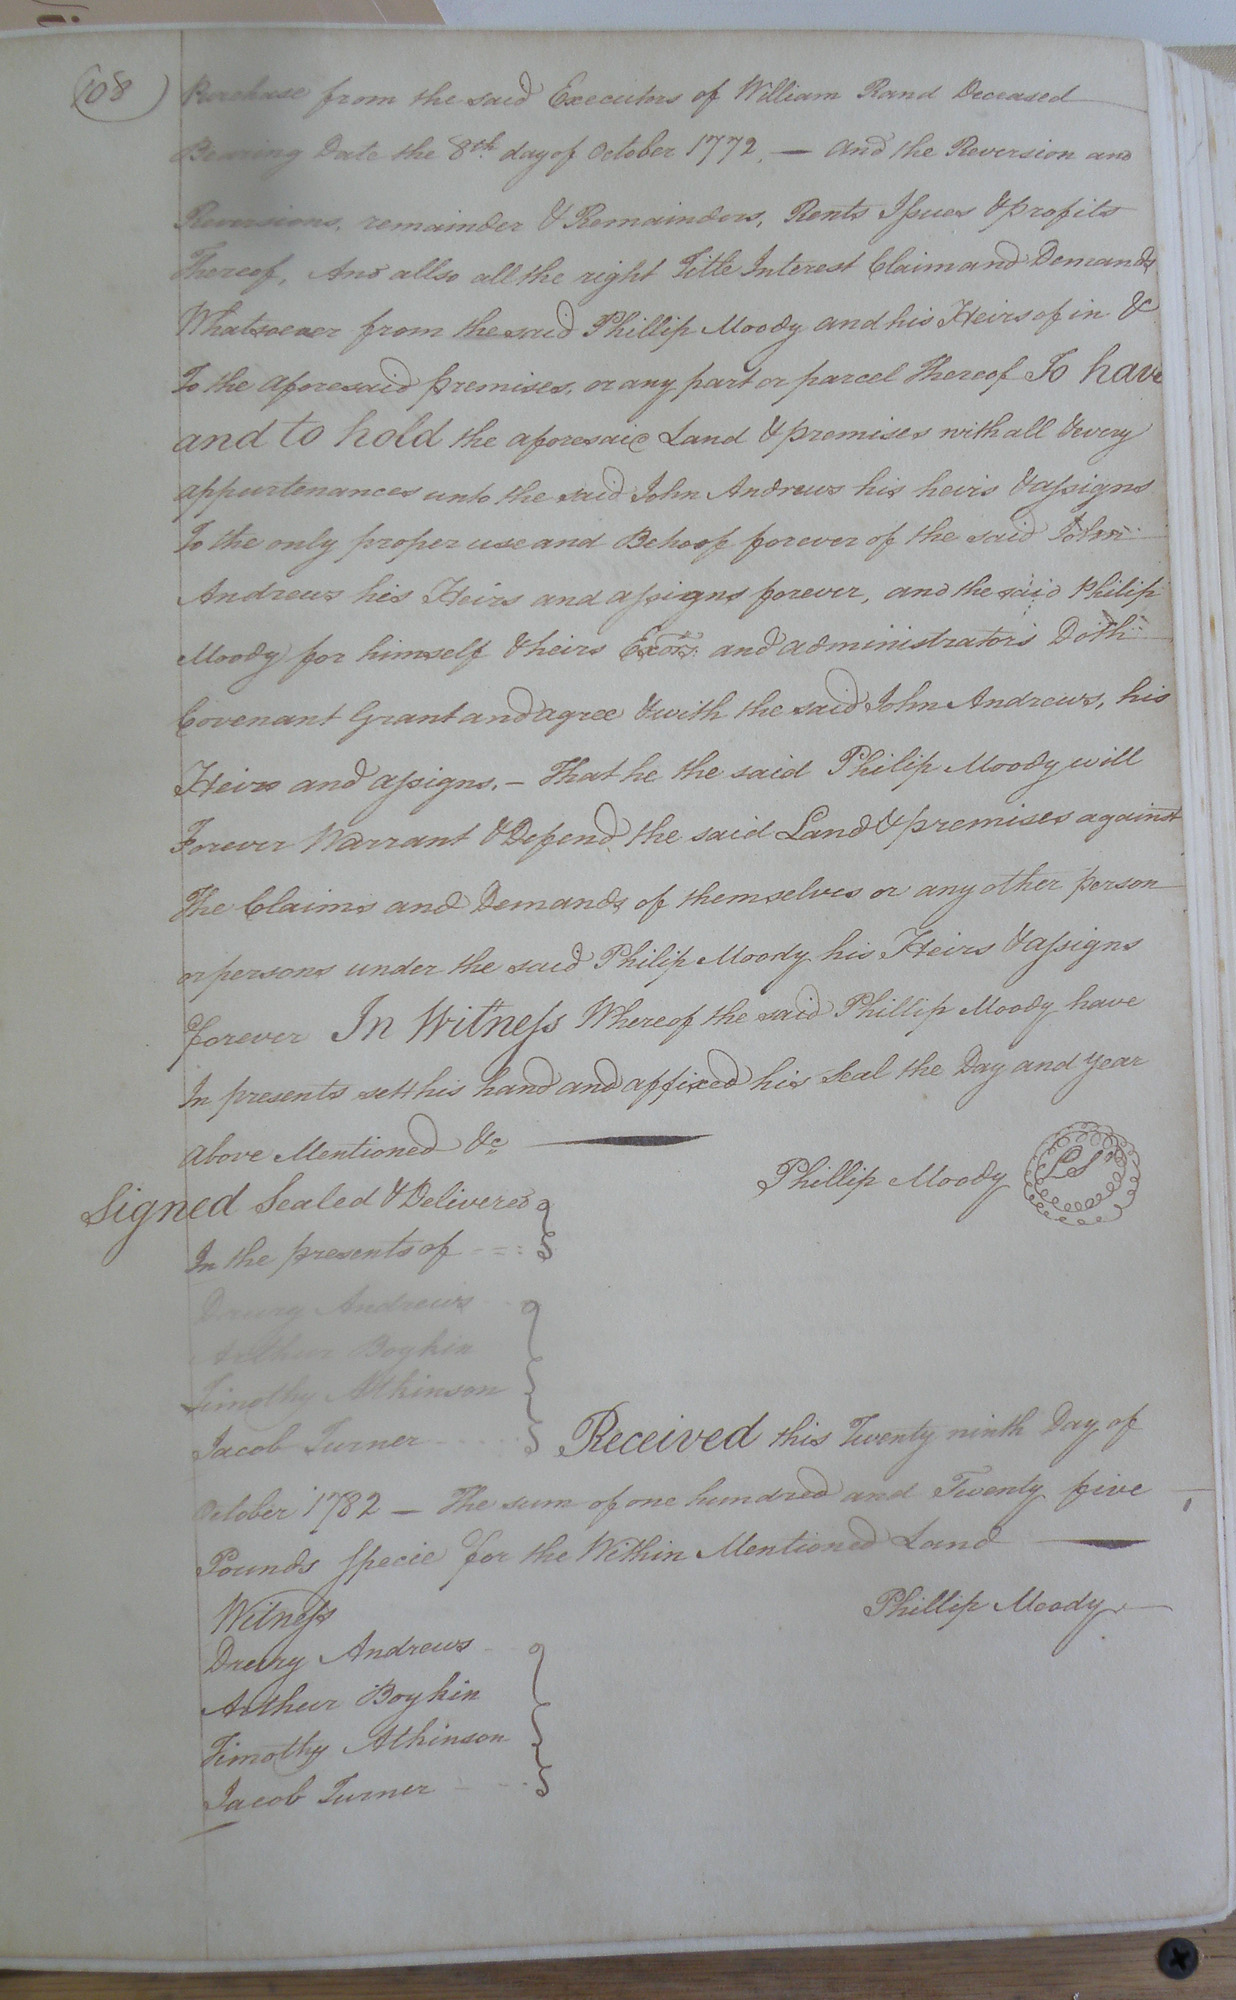 108
Purchase from the said Executors of William Rand Deceased
Bearing Date the 8th day of October 1772, — And the Reversion and
Reversions, remainder & Remainders, Rents Issues & profits
Thereof, And allso all the right Title Interest Claim and Demands
Whatsoever from the said Phillip Moody and his Heirs of in &
To the aforesaid premises, or any part or parcel Thereof To have
and to hold the aforesaid Land & premises with all & every
appurtenances unto the said John Andrews his heirs & assigns
To the only proper use and Behoof forever of the said John
Andrews his Heirs and assigns forever, and the said Philip
Moody for himself & heirs Exors: and administrators Doth
Covenant Grant and agree & with the said John Andrews, his
Heirs and assigns, — That he the said Philip Moody will
Forever Warrant & Defend the said Land & premises against
The Claims and Demands of themselves or any other person
or persons under the said Philip Moody his Heirs & assigns
forever In Witness Whereof the said Phillip Moody have
In presents sett his hand and affixed his Seal the Day and Year
Above Mentioned &c
Phillip Moody LS
Signed Sealed & Delivered
In the presents of
Drury Andrews
Arthur Boykin
Timothy Atkinson
Jacob Turner
Received this Twenty ninth Day of
October 1782 — The sum of one hundred and Twenty five
Pounds Specie for the Within Mentioned Land
Witness
Phillip Moody
Drury Andrews
Arthur Boykin
Timothy Atkinson
Jacob Turner